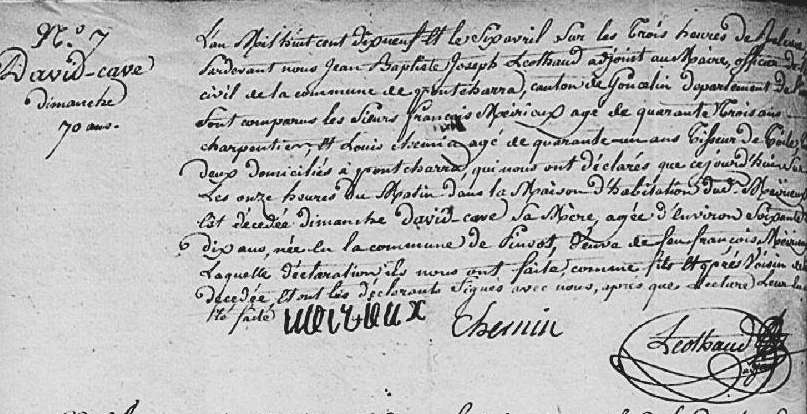 N.o 7
David-cave
dimanche
70 ans.
L'an Mil huit cent dix neuf et le Six avril Sur les Trois heures de Relevé
Pardevant nous Jean Baptiste Joseph Leothaud adjoint au Maire, officier de
civil de la commune de pontcharra, canton de Goncelin departement de
Sont comparus les Sieurs françois Meirieux agé de quarante Trois ans
charpentier, et Louis chemin agé de quarante-un ans Tisseur de Toile,
deux domiciliés à pontcharra, qui nous ont déclarés que cejourd'hui Sur
Les onze heures du Matin dans la Maison d'habitation dud. Meirieux
Est décedée dimanche david-cave Sa Mère, agée d'Environ Soixante
dix ans, née en la commune de Pinsot, Veuve de feu françois Meirieux
Laquelle déclaration ils nous ont faite, comme fils Et près Voisin de la
décedée Et ont les déclarants Signés avec nous, après que declaré Leur
été faite
meirieux Chemin
Leothaud
adjoint